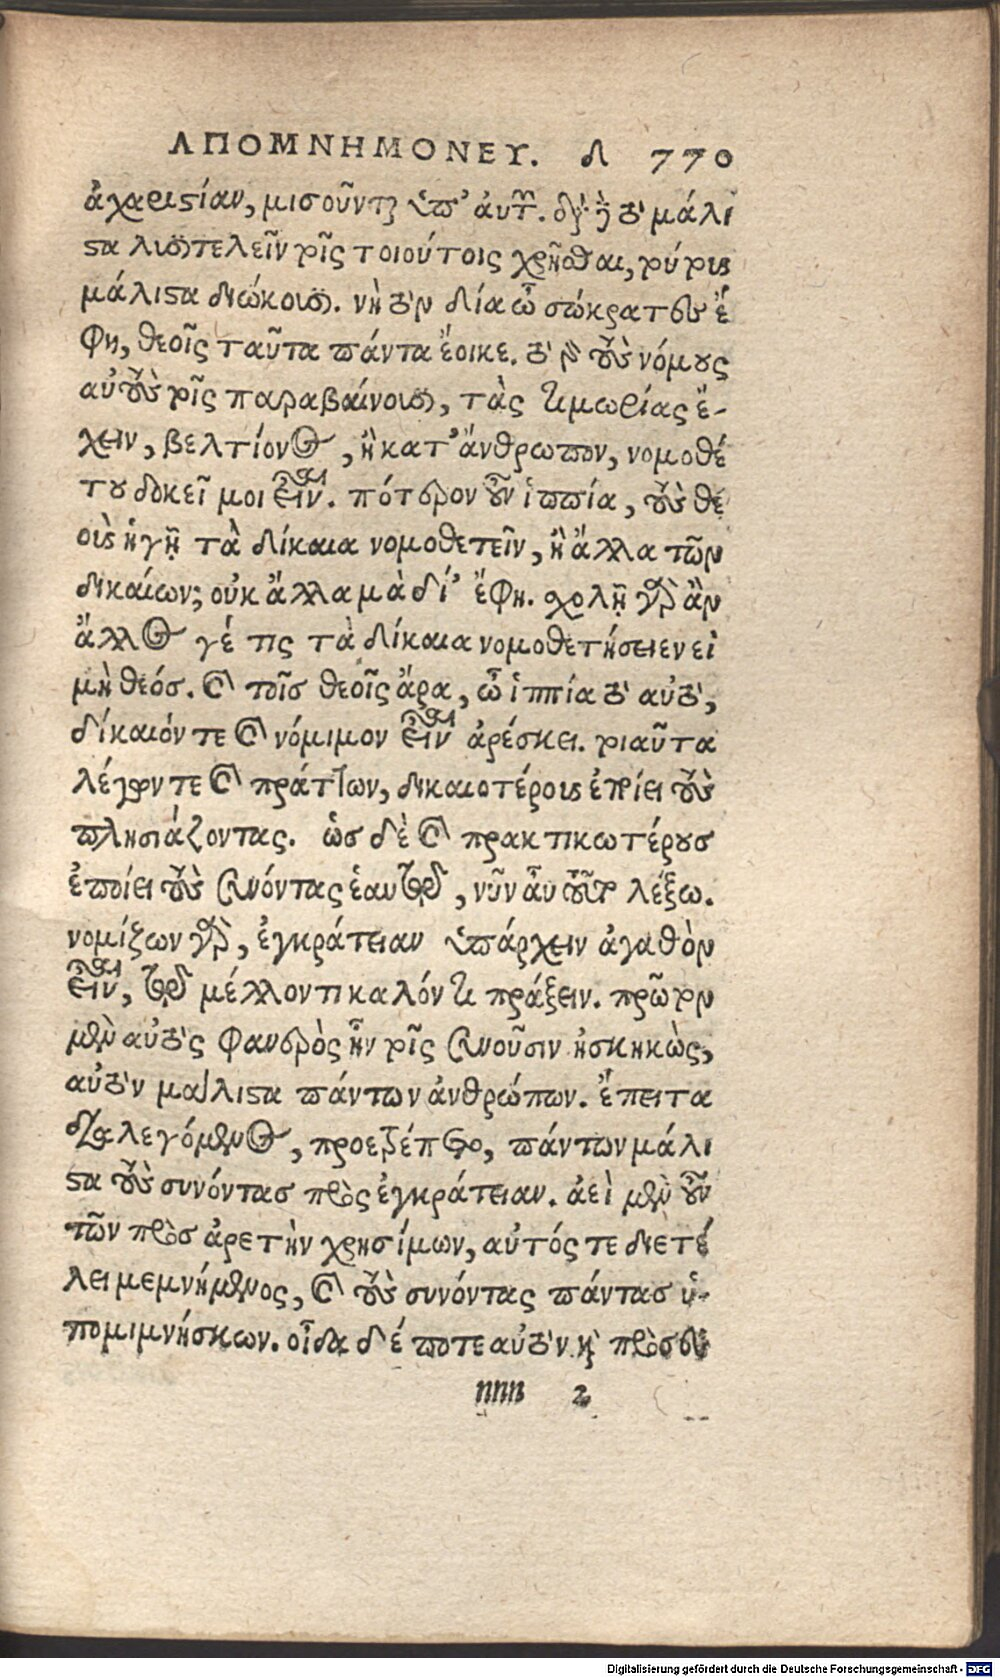 ΑΠΟΜΝΗΜΟΝΕΥ. Δ 770
ἀχαριστίαν, μισοῦνται ὑπ' αὐτῶν. διὰ δὲ τὸ μάλι
στα λυσιτελεῖν τοῖς τοιούτοις χρῆσθαι, τούτους
μάλιστα διώκουσι. νὴ τὸν δία ὦ σώκρατες ἔ
φη, θεοῖς ταῦτα πάντα ἔοικε. τὸ γὰρ τοὺς νόμους
αὐτοὺς τοῖς παραβαίνουσι, τὰς τιμωρίας ἔ-
χειν, βελτίονος, ἢ κατ' ἄνθρωπον, νομοθέ
του δοκεῖ μοι εἶναι. πότερον οὖν ἱππία, τοὺς θε
οὺς ἡγῇ τὰ δίκαια νομοθετεῖν, ἢ ἄλλα τῶν
δικαίων; οὐκ ἄλλα μὰ δί' ἔφη. σχολῇ γὰρ ἂν
ἄλλος γέ τις τὰ δίκαια νομοθετήσειεν εἰ
μὴ θεός. καὶ τοῖς θεοῖς ἄρα, ὦ ἱππία τὸ αὐτὸ,
δίκαιόν τε καὶ νόμιμον εἶναι ἀρέσκει. τοιαῦτα
λέγων τε καὶ πράττων, δικαιοτέρους ἐποίει τοὺς
πλησιάζοντας. ὡς δὲ καὶ πρακτικωτέρους
ἐποίει τοὺς συνόντας ἑαυτῷ, νῦν αὖ τοῦτο λέξω.
νομίζων γὰρ, ἐγκράτειαν ὑπάρχειν ἀγαθὸν
εἶναι, τῷ μέλλοντι καλόν τι πράξειν. πρῶτον
μὲν αὐτὸς φανερὸς ἦν τοῖς συνοῦσιν ἠσκηκὼς,
αὐτὸν μάλιστα πάντων ἀνθρώπων. ἔπειτα
διαλεγόμενος, προετρέπετο, πάντων μάλι
στα τοὺς συνόντας πρὸς ἐγκράτειαν. ἀεὶ μὲν οὖν
τῶν πρὸς ἀρετὴν χρησίμων, αὐτός τε διετέ
λει μεμνήμενος, καὶ τοὺς συνόντας πάντας ὑ-
πομιμνήσκων. οἶδα δέ ποτε αὐτὸν καὶ πρὸς εὐ
nnn 2
Digitalisierung gefördert durch die Deutsche Forschungsgemeinschaft - DFG